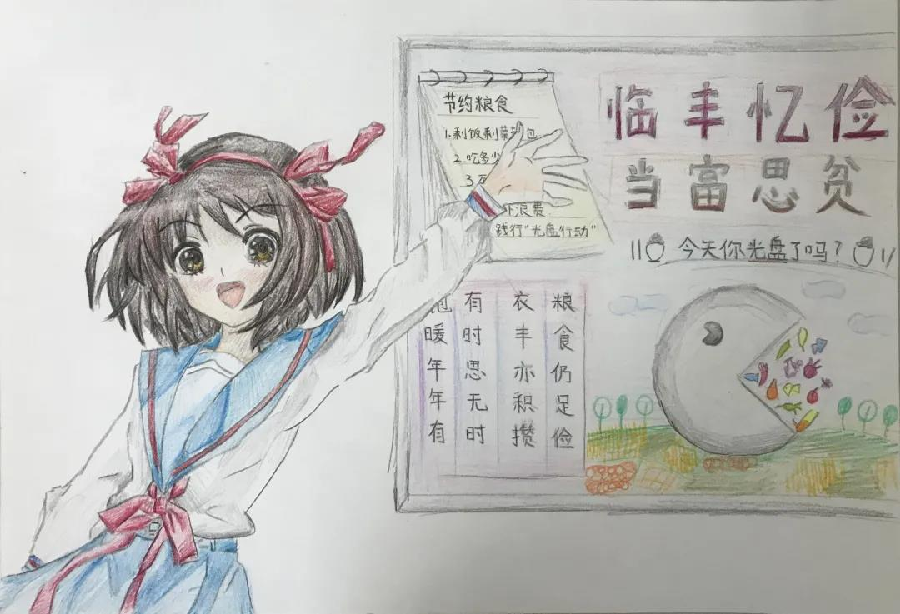 节约粮食
1.剩饭剩菜打包
2.吃多少
3.
浪费
践行“光盘行动”
临丰忆俭
当富思贫
今天你光盘了吗？
粮食仍足俭
衣丰亦积攒
有时思无时
暖年年有